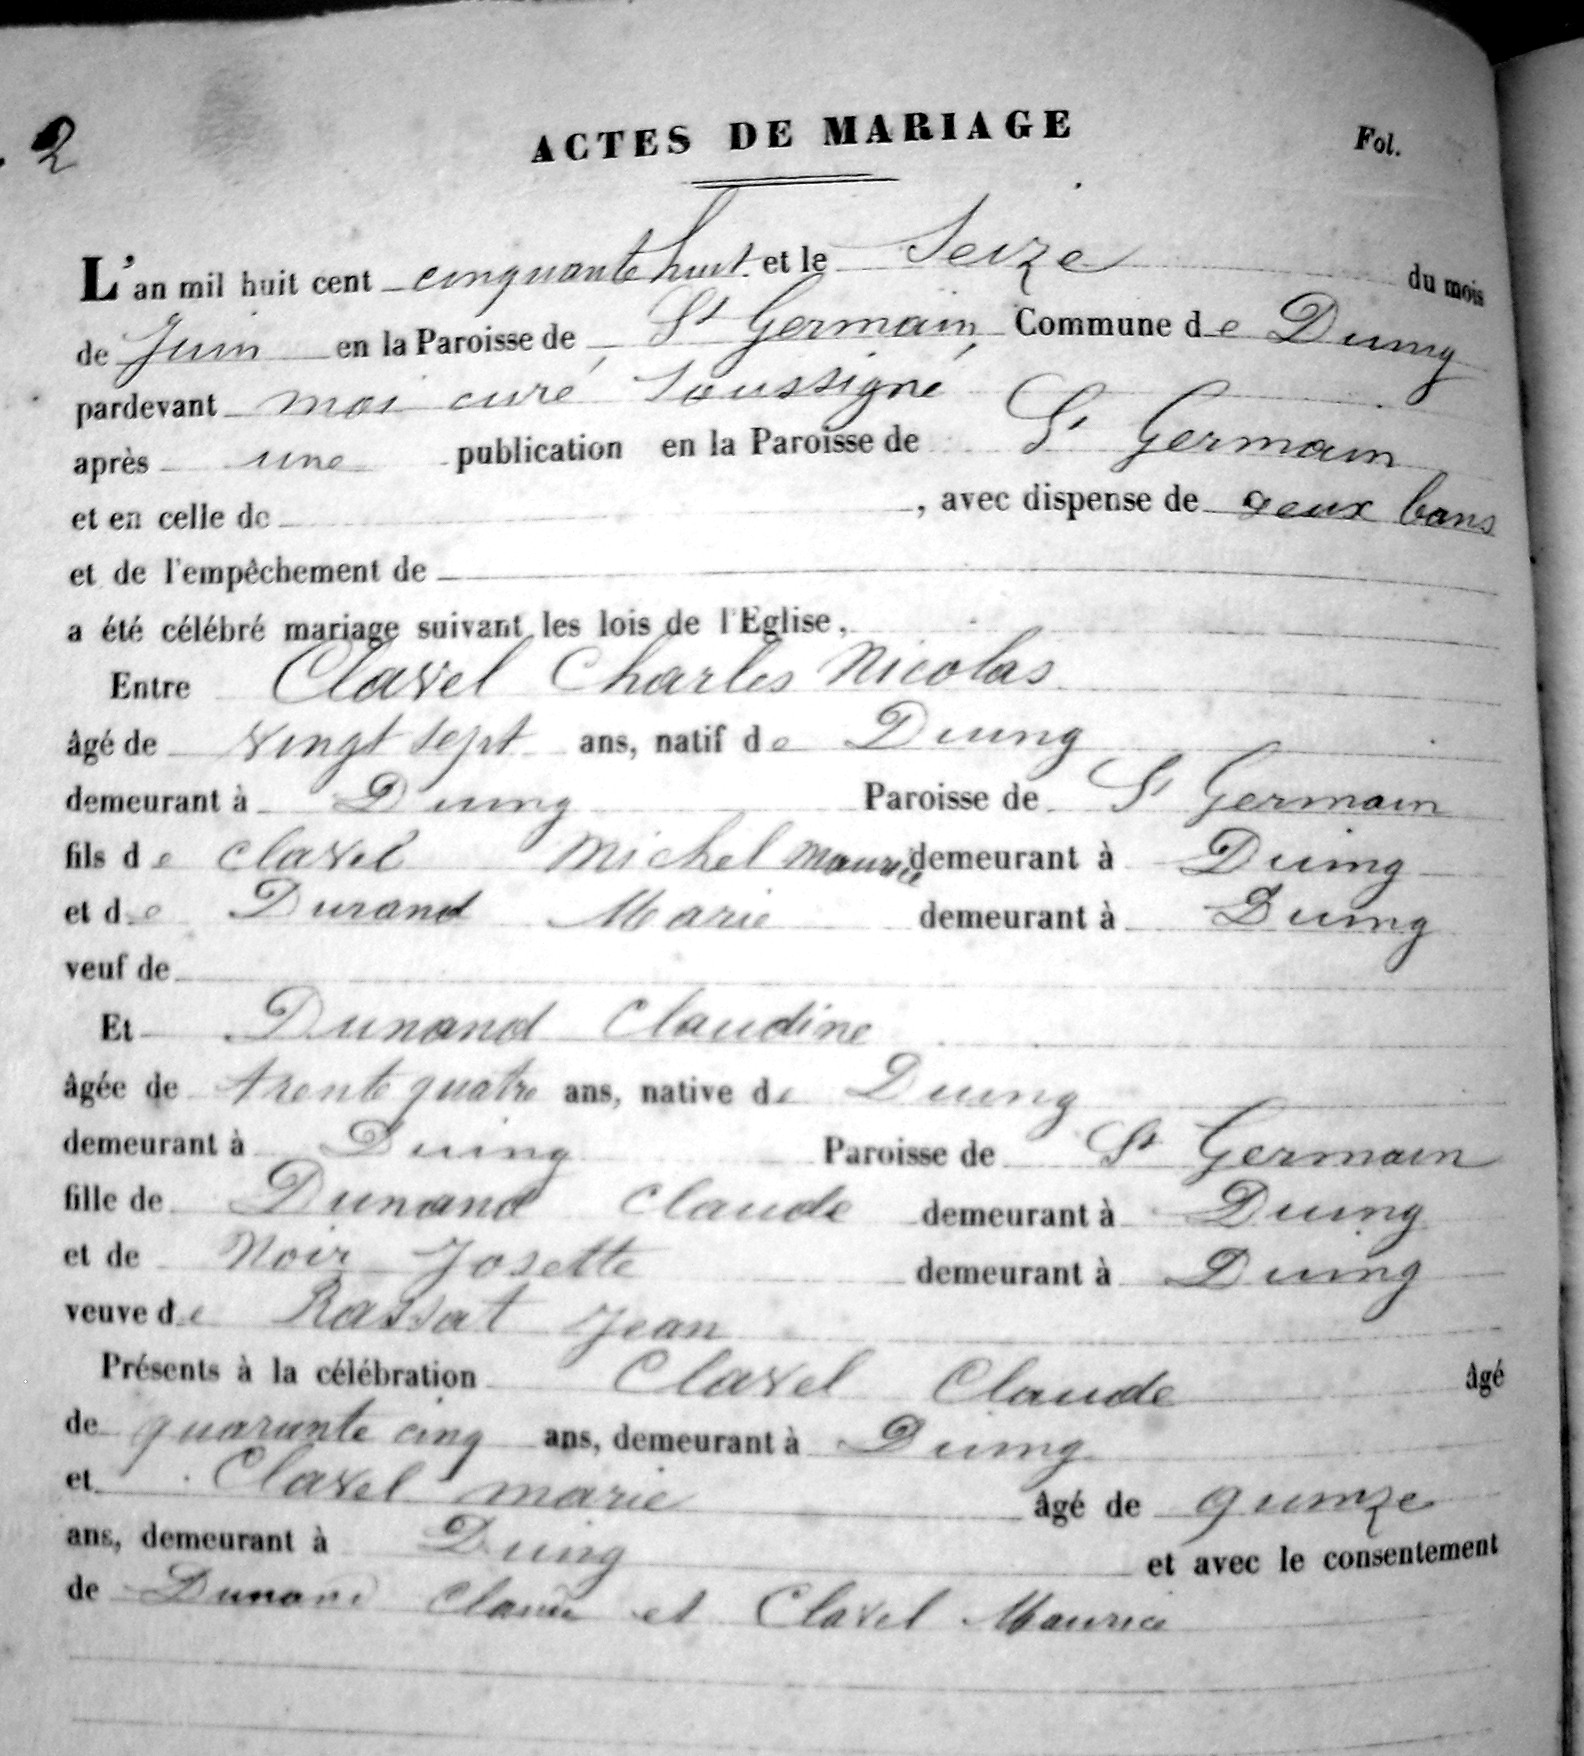 2
ACTES DE MARIAGE
Fol.
L'an mil huit cent cinquante huit et le Seize du mois
de Juin en la Paroisse de St Germain, Commune de Duing
pardevant moi curé soussigné
après une publication en la Paroisse de St Germain
et en celle de , avec dispense de deux bans
et de l'empêchement de
a été célébré mariage suivant les lois de l'Eglise,
Entre Clavel Charles Nicolas
âgé de vingt sept ans, natif de Duing
demeurant à Duing Paroisse de St Germain
fils de Clavel Michel Maurice demeurant à Duing
et de Durand Marie demeurant à Duing
veuf de
Et Dunand Claudine
âgée de trente quatre ans, native de Duing
demeurant à Duing Paroisse de St Germain
fille de Dunand Claude demeurant à Duing
et de Noir Josette demeurant à Duing
veuve de Rassat Jean
Présents à la célébration Clavel Claude âgé
de quarante cinq ans, demeurant à Duing
et Clavel marie âgé de quinze
ans, demeurant à Duing et avec le consentement
de Dunand Claude et Clavel Maurice